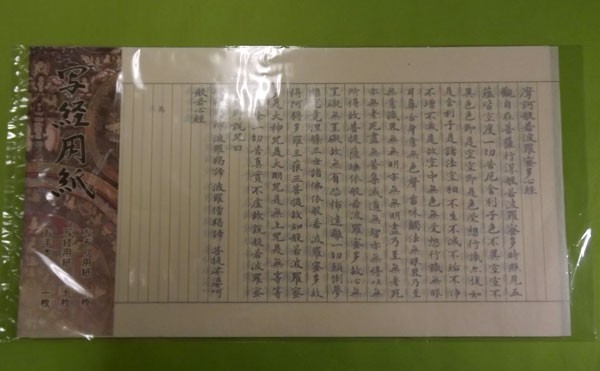 写経用紙
摩訶般若波羅蜜多心経
觀自在菩薩行深般若波羅蜜多時照見五
蘊皆空度一切苦厄舎利子色不異空空不
異色色即是空空即是色受想行識亦復如
是舎利子是諸法空相不生不滅不垢不浄
不増不減是故空中無色無受想行識無眼
耳鼻舌身意無色聲香味觸法無眼界乃至
無意識界無無明亦無無明盡乃至無老死
亦無老死盡無苦集滅道無智亦無得以無
所得故菩提薩埵依般若波羅蜜多故心無
罣礙無罣礙故無有恐怖遠離一切顛倒夢
想究竟涅槃三世諸佛依般若波羅蜜多故
得阿耨多羅三藐三菩提故知般若波羅蜜
是大神咒是大明咒是無上咒是無等等
除一切苦真實不虚故説般若波羅蜜
即説咒曰
諦波羅羯諦波羅僧羯諦菩提薩婆訶
般若心経
為